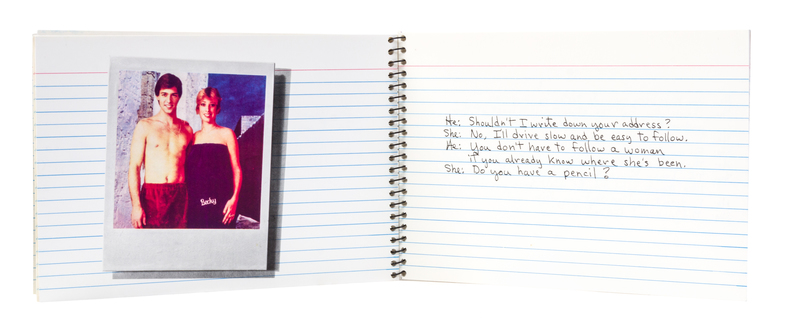 Becky
He: Shouldn't I write down your address?
She: No, I'll drive slow and be easy to follow.
He: You don't have to follow a woman
if you already know where she's been.
She: Do you have a pencil?